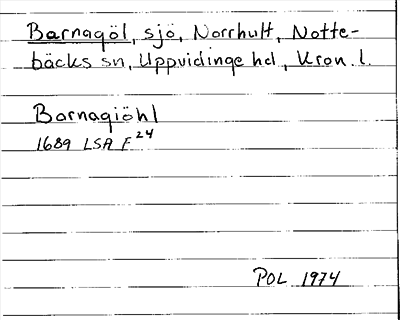 Barnagöl, sjö, Norrhult, Notte-
bäcks sn, Uppvidinge hd, Kron. l.
Barnagiöhl
1689 LSA F 24
POL 1974